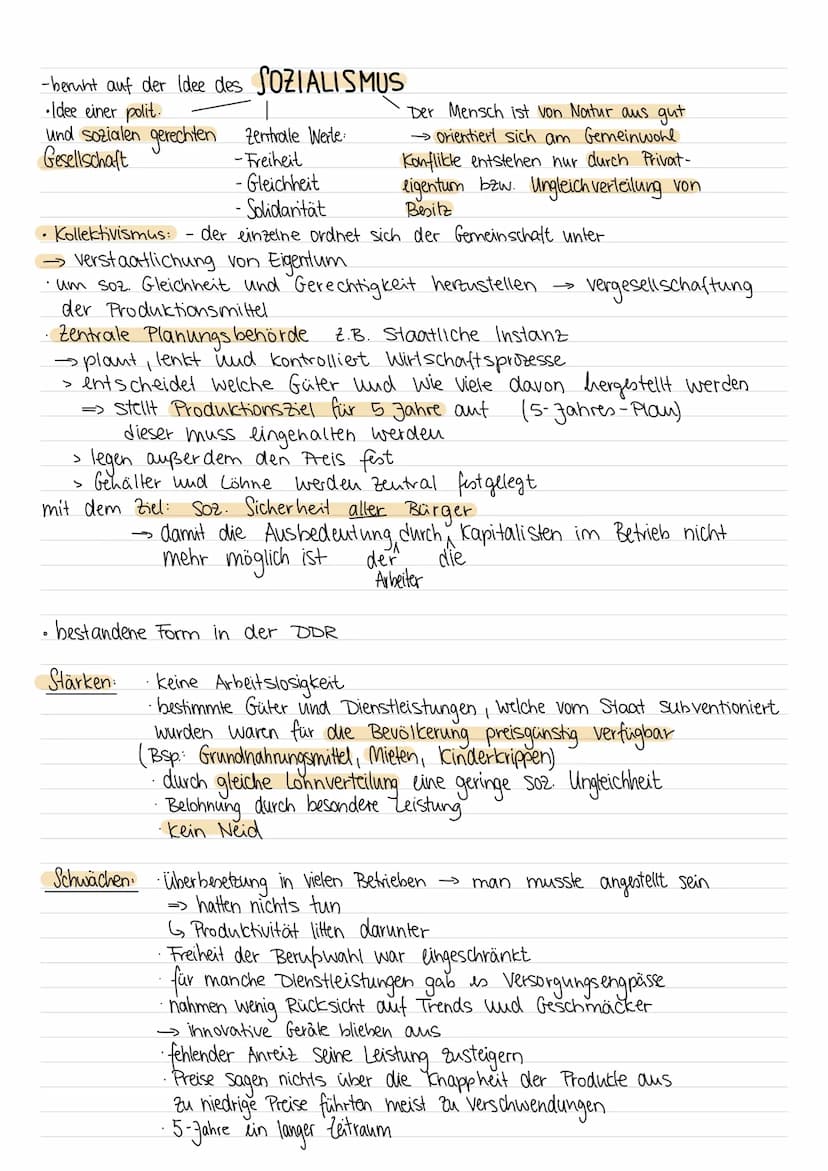 -beruht auf der Idee des SOZIALISMUS
•Idee einer polit.
und sozialen gerechten
Gesellschaft
Zentrale Werte:
- Freiheit
- Gleichheit
- Solidarität
Der Mensch ist von Natur aus gut
→ orientiert sich am Gemeinwohl
Konflikte entstehen nur durch Privat-
eigentum bzw. Ungleichverteilung von
Besitz
• Kollektivismus: - der einzelne ordnet sich der Gemeinschaft unter
→ verstaatlichung von Eigentum
· um soz. Gleichheit und Gerechtigkeit herzustellen → vergesellschaftung
der Produktionsmittel
· Zentrale Planungsbehörde z.B. Staatliche Instanz
→ plant, lenkt und kontrolliert Wirtschaftsprozesse
> entscheidet welche Güter und wie viele davon hergestellt werden
⇒ stellt Produktionsziel für 5 Jahre auf (5-Jahres-Plan)
dieser muss eingehalten werden
> legen außerdem den Preis fest
> Gehälter und Löhne werden zentral festgelegt
mit dem Ziel: soz. Sicherheit aller Bürger
→ damit die Ausbedeutung durch Kapitalisten im Betrieb nicht
mehr möglich ist der die
Arbeiter
• bestandene Form in der DDR
Stärken: · keine Arbeitslosigkeit
· bestimmte Güter und Dienstleistungen, welche vom Staat subventioniert
wurden waren für die Bevölkerung preisgünstig verfügbar
(Bsp: Grundnahrungsmittel, Mieten, Kinderkrippen)
· durch gleiche Lohnverteilung eine geringe soz. Ungleichheit
· Belohnung durch besondere Leistung
· kein Neid
Schwächen: · Überbesetzung in vielen Betrieben → man musste angestellt sein
⇒ hatten nichts tun
↳ Produktivität litten darunter
· Freiheit der Berufswahl war eingeschränkt
· für manche Dienstleistungen gab es Versorgungsengpässe
· nahmen wenig Rücksicht auf Trends und Geschmäcker
→ innovative Geräte blieben aus
· fehlender Anreiz seine Leistung zusteigern
· Preise sagen nichts über die Knappheit der Produkte aus
zu niedrige Preise führten meist zu Verschwendungen
· 5-Jahre ein langer Zeitraum